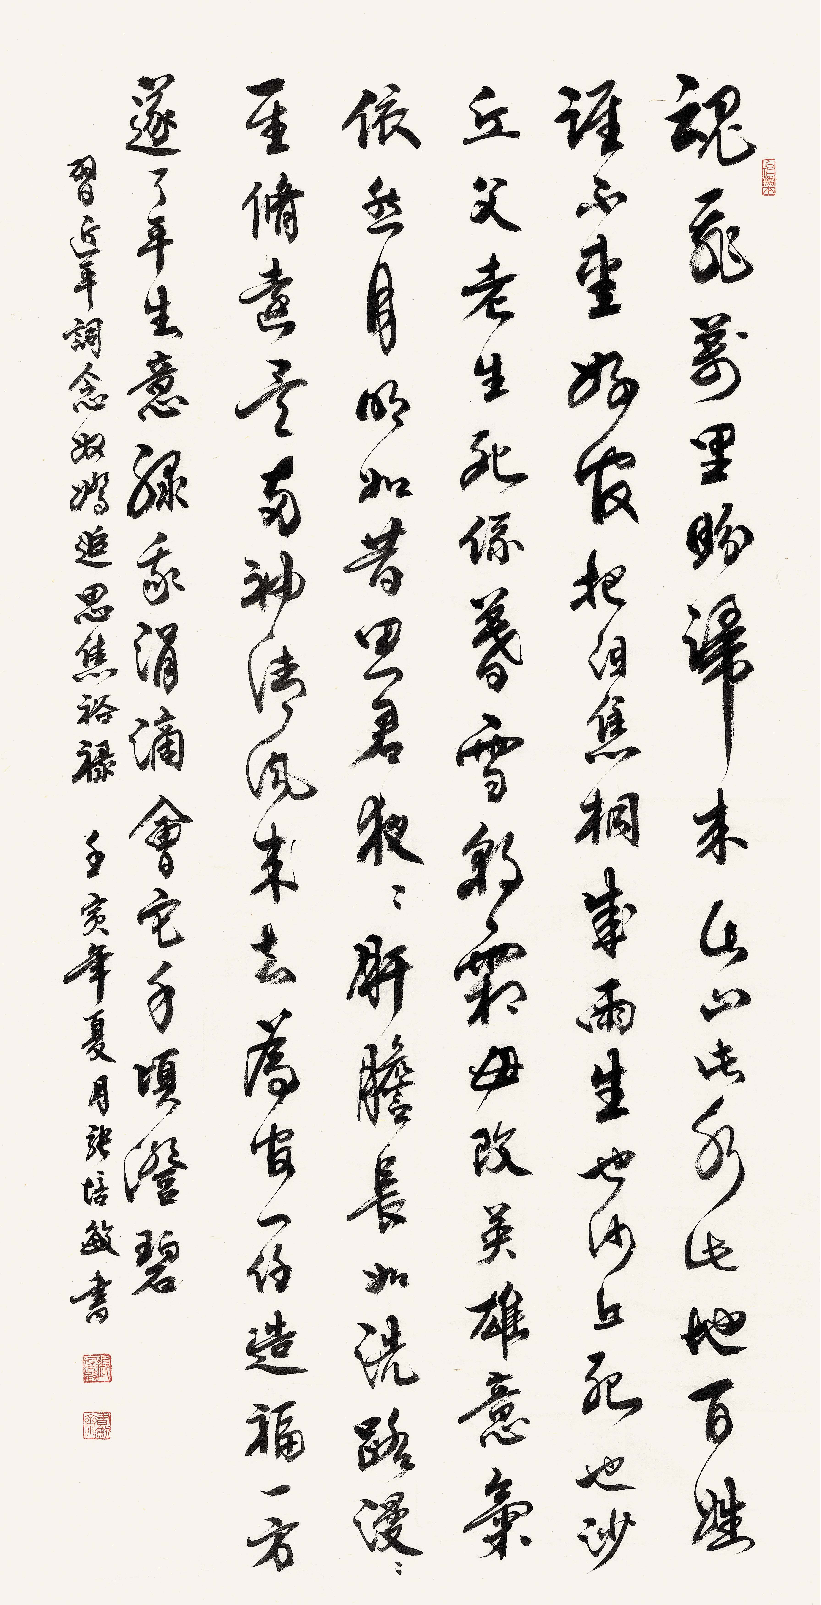 魂飛萬里盼歸來此山此水此地百姓
誰不愛好官把泪焦桐成雨生也沙丘死也沙
丘父老生死係暮雪朝霜毋改英雄意氣
依然月明如昔思君夜〻肝膽長如洗路漫〻
其脩遠矣兩袖清風來去為官一任造福一方
遂了平生意綠我涓滴會它千頃澄碧
習近平詞念奴嬌追思焦裕祿 壬寅年夏月張培敏書